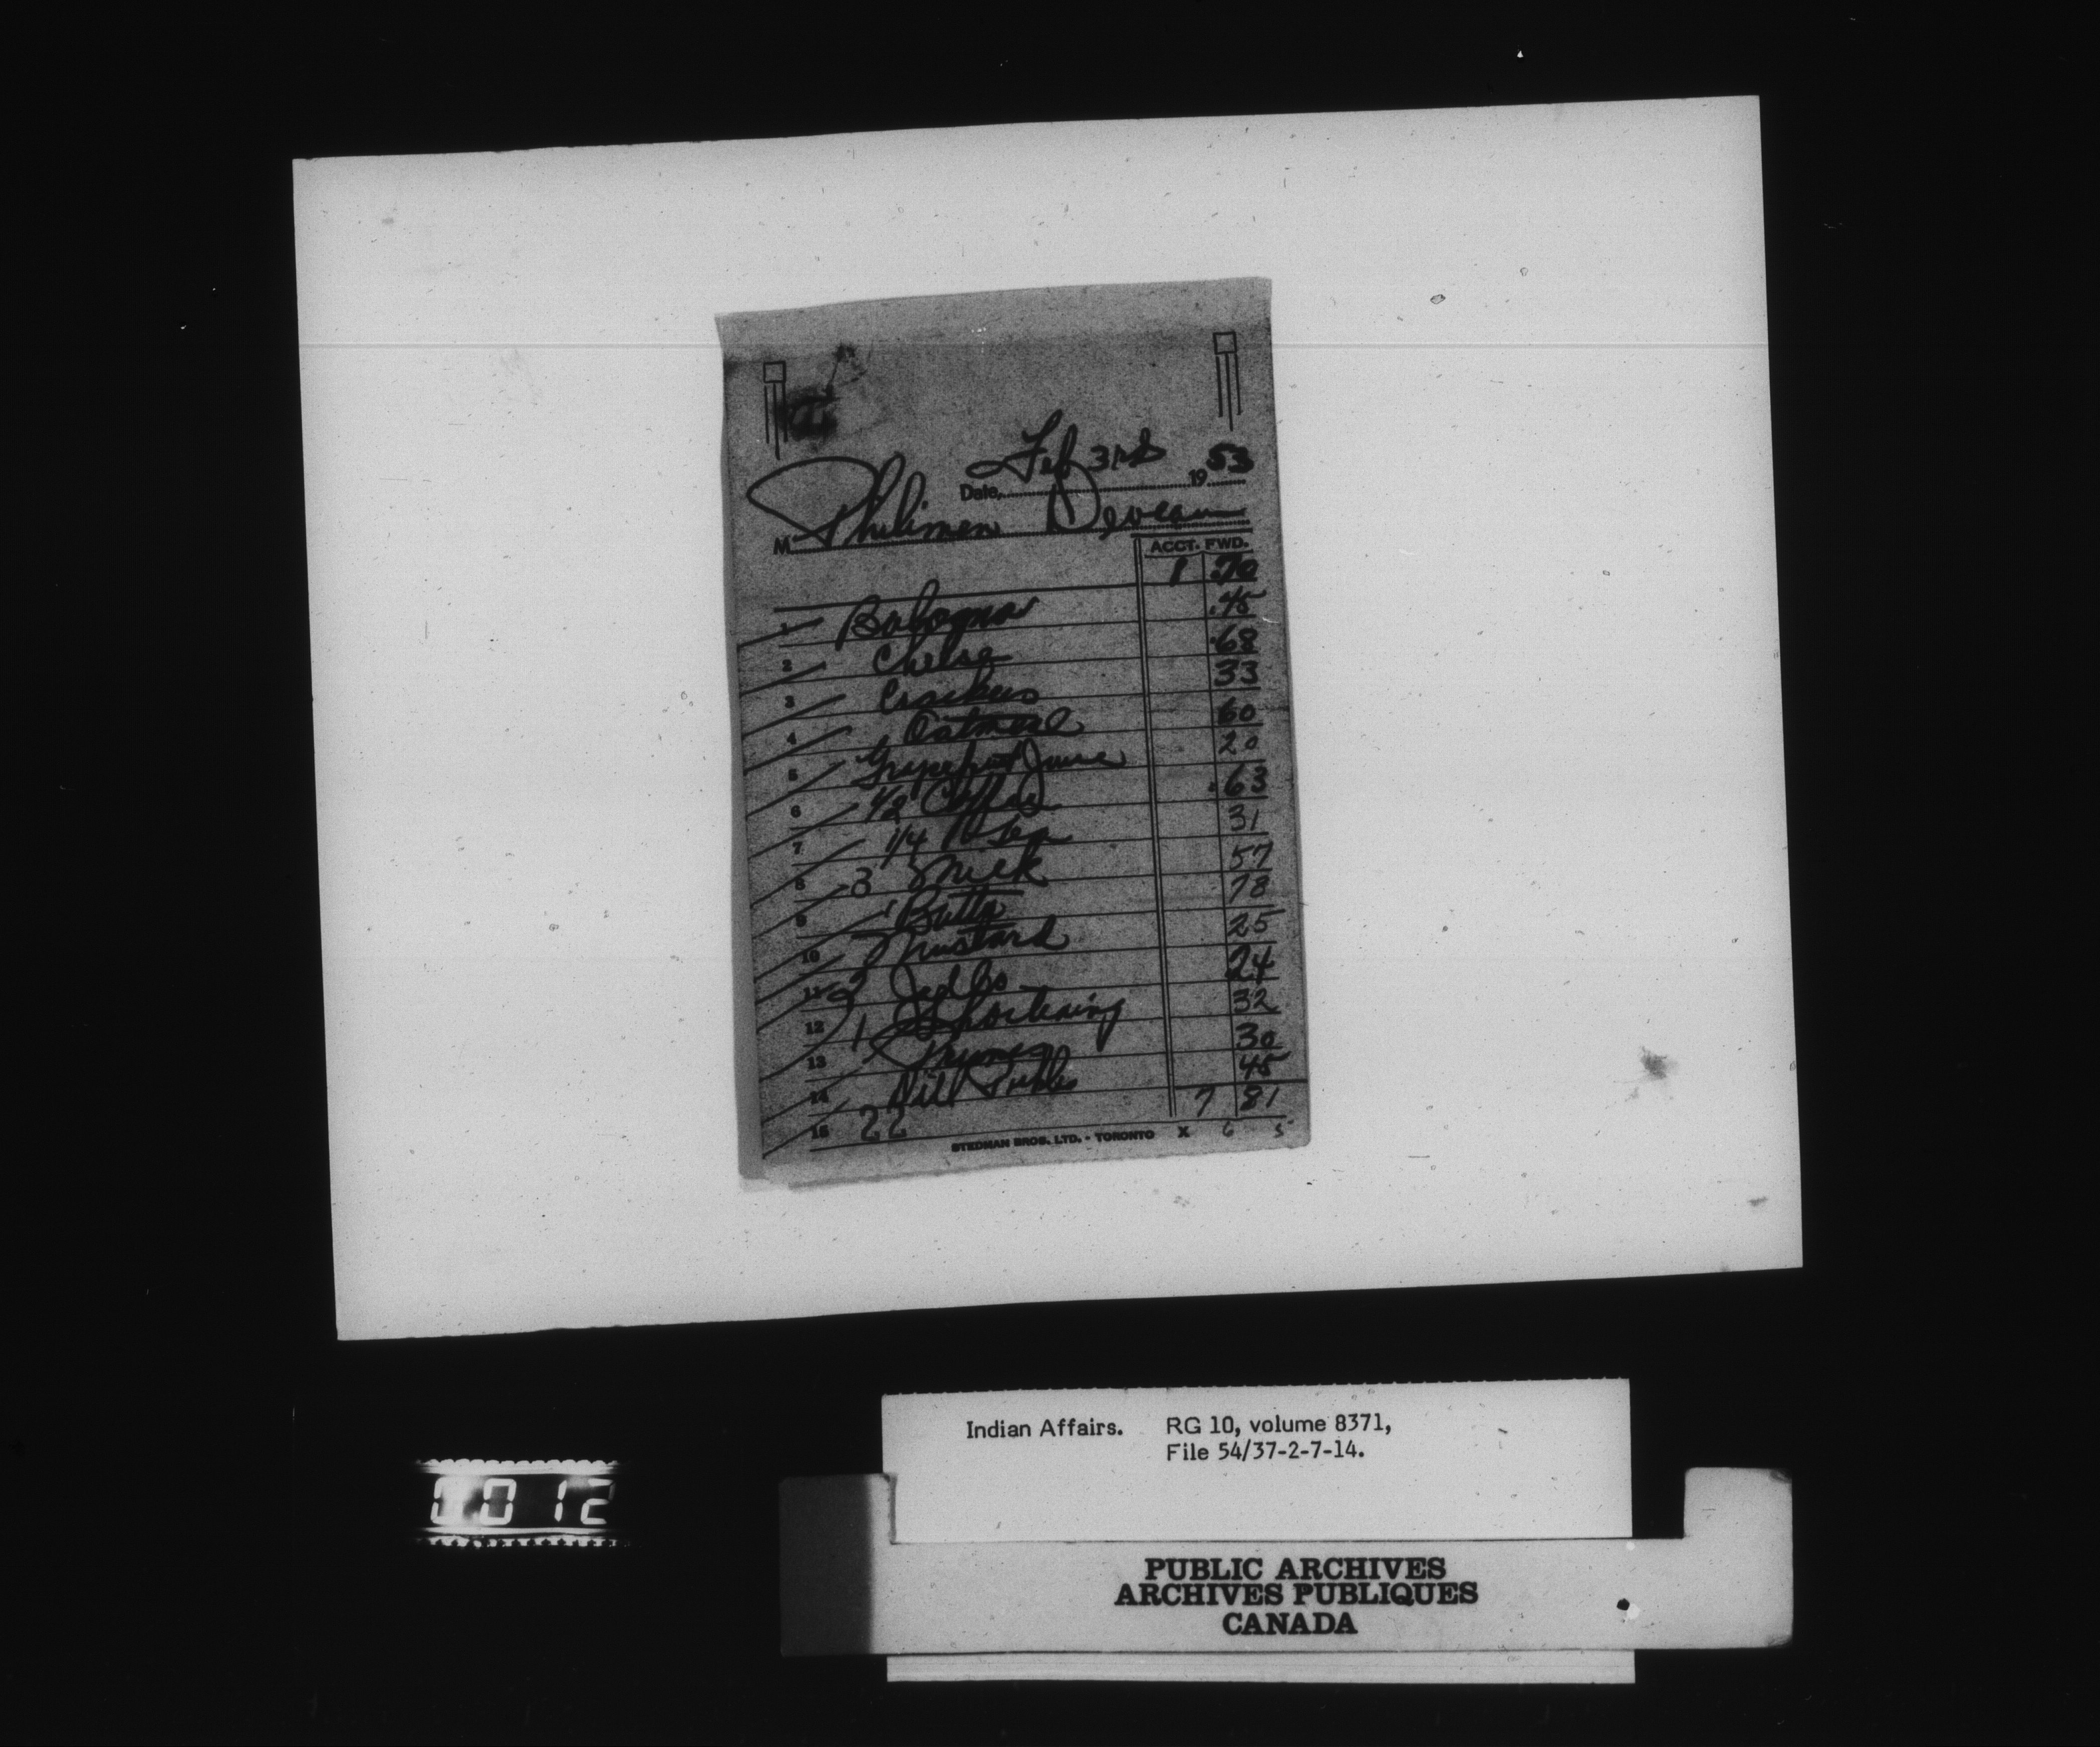 Date, Feb 31st 19 53
M Philimon Deveau
ACCT. FWD.
1 .70
1 Bologna .45
2 Cheese .68
3 Crackers 33
4 Oatmeal 60
5 Grapefruit Juice 20
6 1/2 Coffee .63
7 1/4 Tea 31
8 3 Milk 57
9 1 Butter 78
10 Mustard 25
11 2 Jello 24
12 1 Shortening 32
13 Prunes 30
14 Dill Pickles 45
15 22 7 81
STEDMAN BROS. LTD. - TORONTO X 6 5
Indian Affairs. RG 10, volume 8371,
File 54/37-2-7-14.
0012
PUBLIC ARCHIVES
ARCHIVES PUBLIQUES
CANADA